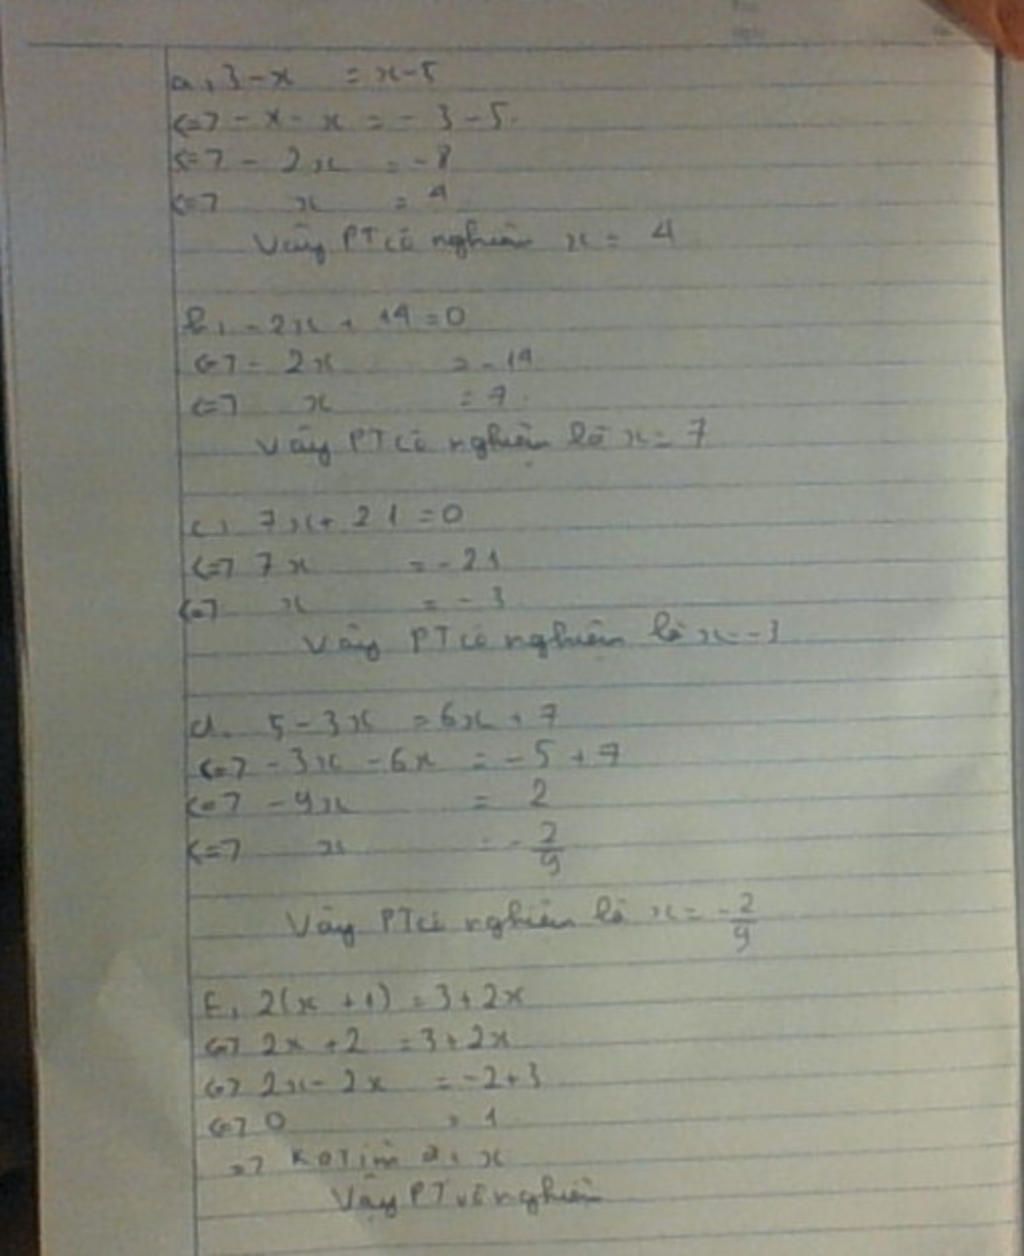 a, 3 - x = x - 5
<=> - x - x = - 3 - 5
<=> - 2x = - 8
<=> x = 4
Vậy PT có nghiệm x = 4
b, - 2x + 14 = 0
<=> - 2x = - 14
<=> x = 7
Vậy PT có nghiệm là x = 7
c, 7x + 21 = 0
<=> 7x = - 21
<=> x = - 3
Vậy PT có nghiệm là x = - 3
d, 5 - 3x = 6x + 7
<=> - 3x - 6x = - 5 + 7
<=> - 9x = 2
<=> x = - 2/9
Vậy PT có nghiệm là x = - 2/9
E, 2(x + 1) = 3 + 2x
<=> 2x + 2 = 3 + 2x
<=> 2x - 2x = - 2 + 3
<=> 0 = 1
=> Ko Tìm đc x
Vậy PT vô nghiệm